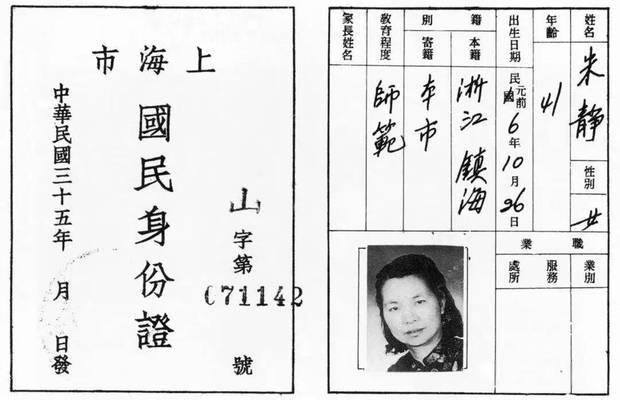 上海市
國民身份證
山字第071142號
中華民國三十五年 月 日發
姓名 朱靜 性別 女
年齡 41
出生日期 民國元前6年10月26日
籍別 本籍 浙江鎮海
寄籍 本市
教育程度 師範
家長姓名
職業
業別
服務處所